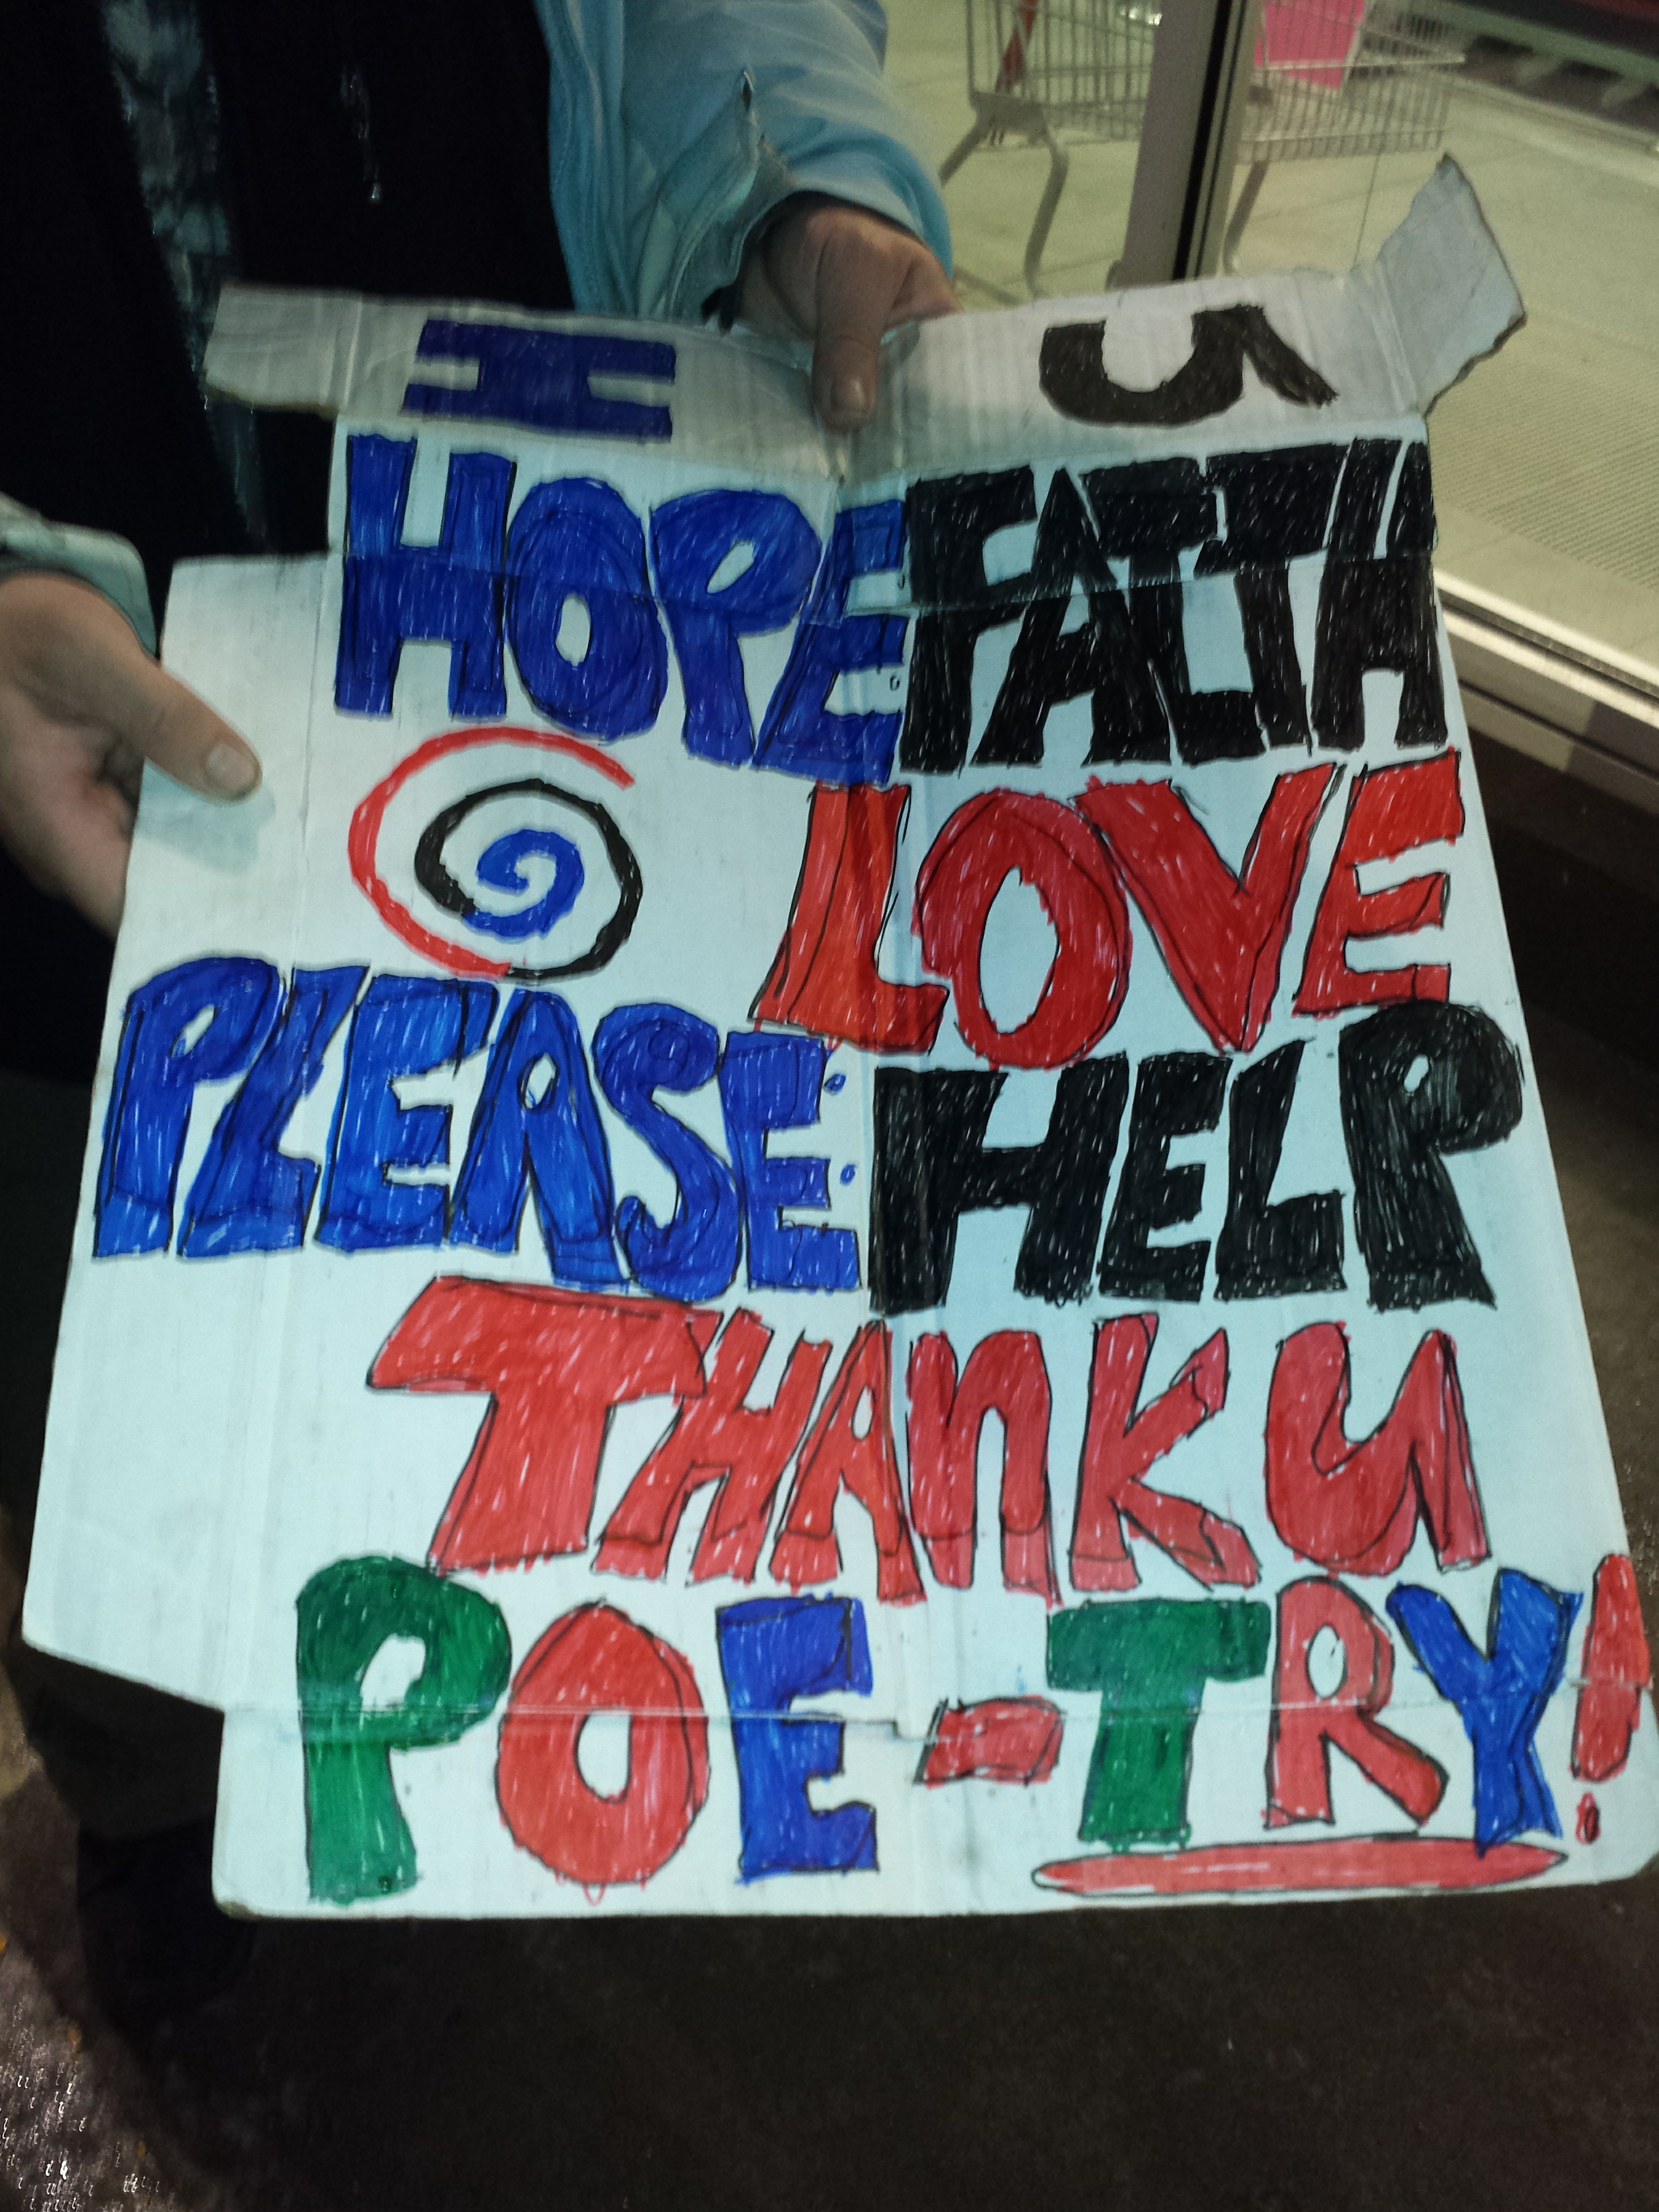 I U
HOPE FAITH
LOVE
PLEASE: HELP
THANK U
POE-TRY!